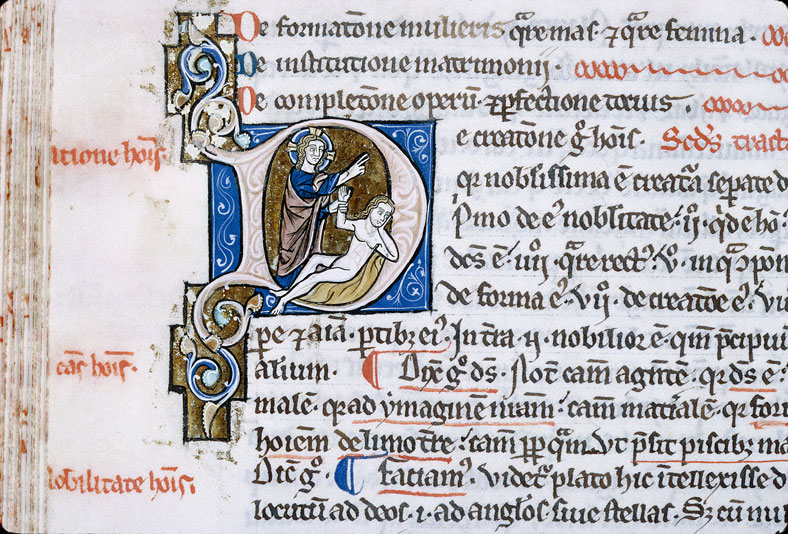 De formatōne mulieris q̄re mas ⁊ q̄re femina.
De institutione matrimonij.
De completōne operū ⁊ perfectione totius.
De creatōne gͦ hoīs. Scd's tract
qr nobilissima ē creata separate d
Primo de eͥ nobilitate. ij. qͥd ē hō.
ds ē. iiij. q̄re rectꝰ. v. in qͣ
de forma eͥ. vij. de creatōe eͥ.
pe ⁊ aīa. ptibꝫ eiꝰ. In tͥa. ij. nobilior ē qm̄ pͥncipui
alium. ¶ Dix̄ gͦ ds. Not cām agn̄te. qr ds ē.
malē. qr ad ymaginē nr̄am. cām materialē. qr for
hoīem de limo tr̄e. cām qͣm. Vt p̄sit piscibꝫ ma
Dix̄ gͦ. ¶ Faciamꝰ. videtͬ plato hic intellexisse d
locutū ad deos .i. ad angl'os siue stellas. Sꝫ cū
atione hoīs.
cās hoīs.
nobilitate hoīs.